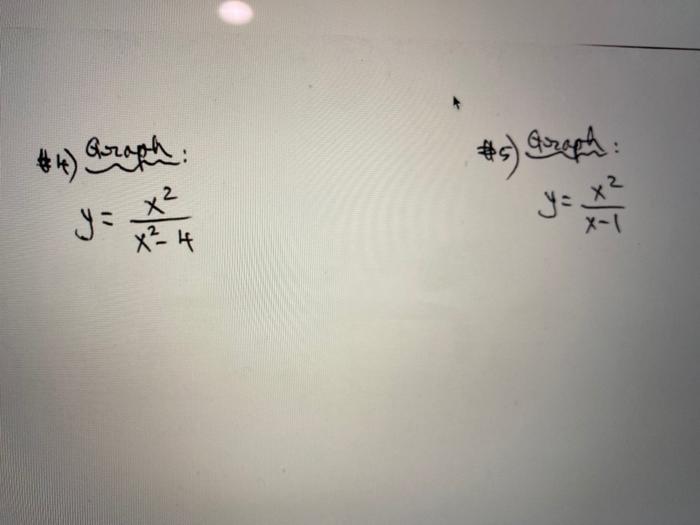 #4) Graph:
y = x²/(x² - 4)
#5) Graph:
y = x²/(x-1)